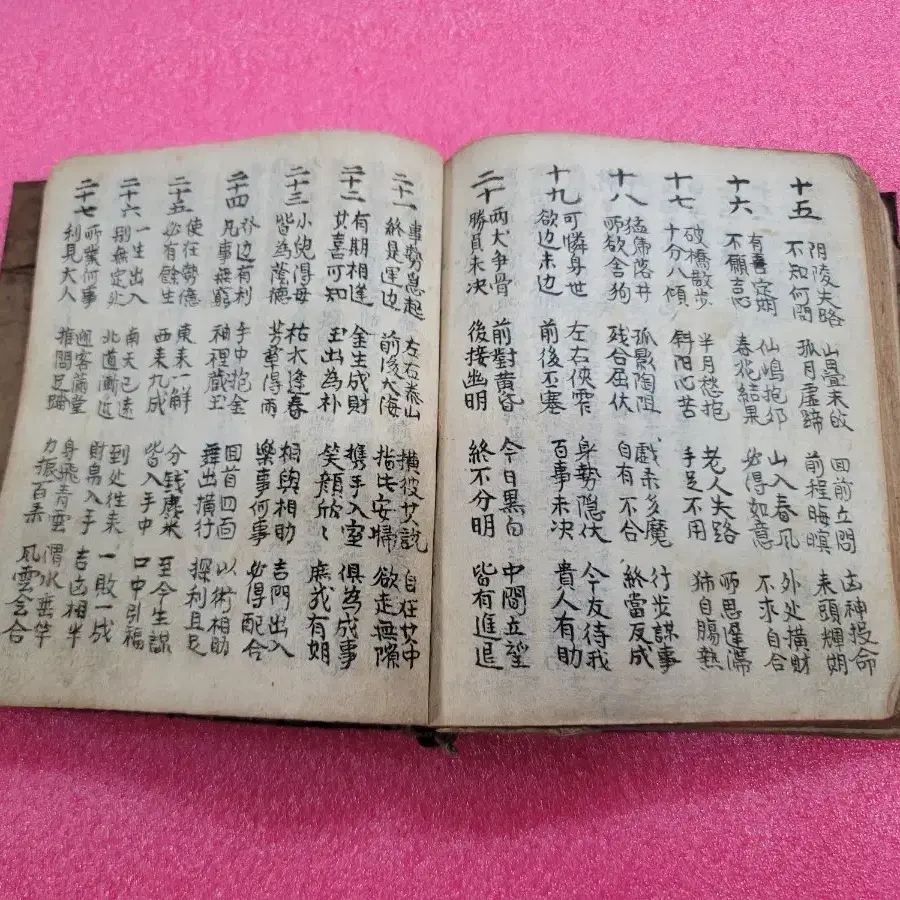 十五
阴陵失路
不知何問
山疊未啟
孤月虛蹄
回前立問
前程晦暝
凶神投命
未頭輝明
十六
有喜定期
不願言志
仙嶋抱卵
春花結果
山入春風
必得如意
外处横財
不求自合
十七
破橋散步
十分八傾
半月愁拒
斜阳心苦
老人失路
手足不用
所思崔濡
肺自腸熱
十八
猛乕落井
所欲舍狗
孤影陶阻
残合屈伏
戲未多魔
自有不合
行步謀事
終當反成
十九
可憐身世
欲边未边
左右俠窄
前後否塞
身勢隐伏
百事未决
今友待我
貴人有助
二十
两犬争骨
勝負未决
前對黄昏
後接幽明
今日黒白
終不分明
中閣立望
皆有進退
二十一
車勢急起
終是運边
左右泰山
前後大海
横彼女說
指氏安帰
自在女中
欲走無隙
二十二
有期相逢
其喜可知
金生成財
玉出為补
携手入室
笑顔欣〻
俱為成事
庶哉有期
二十三
小兒得母
皆為蔭德
枯木逢春
芳草得雨
相與相助
樂事何事
吉門出入
必得配合
二十四
外边有利
凡事無窮
手中抱金
神裡戱玉
回首四面
舞出横行
以術相助
探利且足
二十五
使在勢德
必有餘生
東未一鮮
西未九成
分钱塵米
皆入手中
至今生謀
口中引福
二十六
一生出入
别無定处
南天已遠
北道漸近
到处往未
財帛入手
一敗一成
吉凶相半
二十七
所業何事
利見大人
迎客滿堂
推問足踏
身飛青雲
力振百未
渭水垂竿
風雲会合